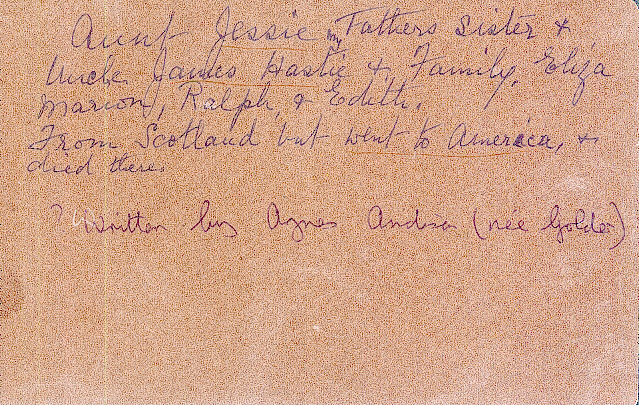 Aunt Jessie my Fathers Sister &
Uncle James Hastie & Family, Eliza
Marion, Ralph, & Edith.
From Scotland but went to America, &
died there.
? Written by Agnes Anderson (née Golder)